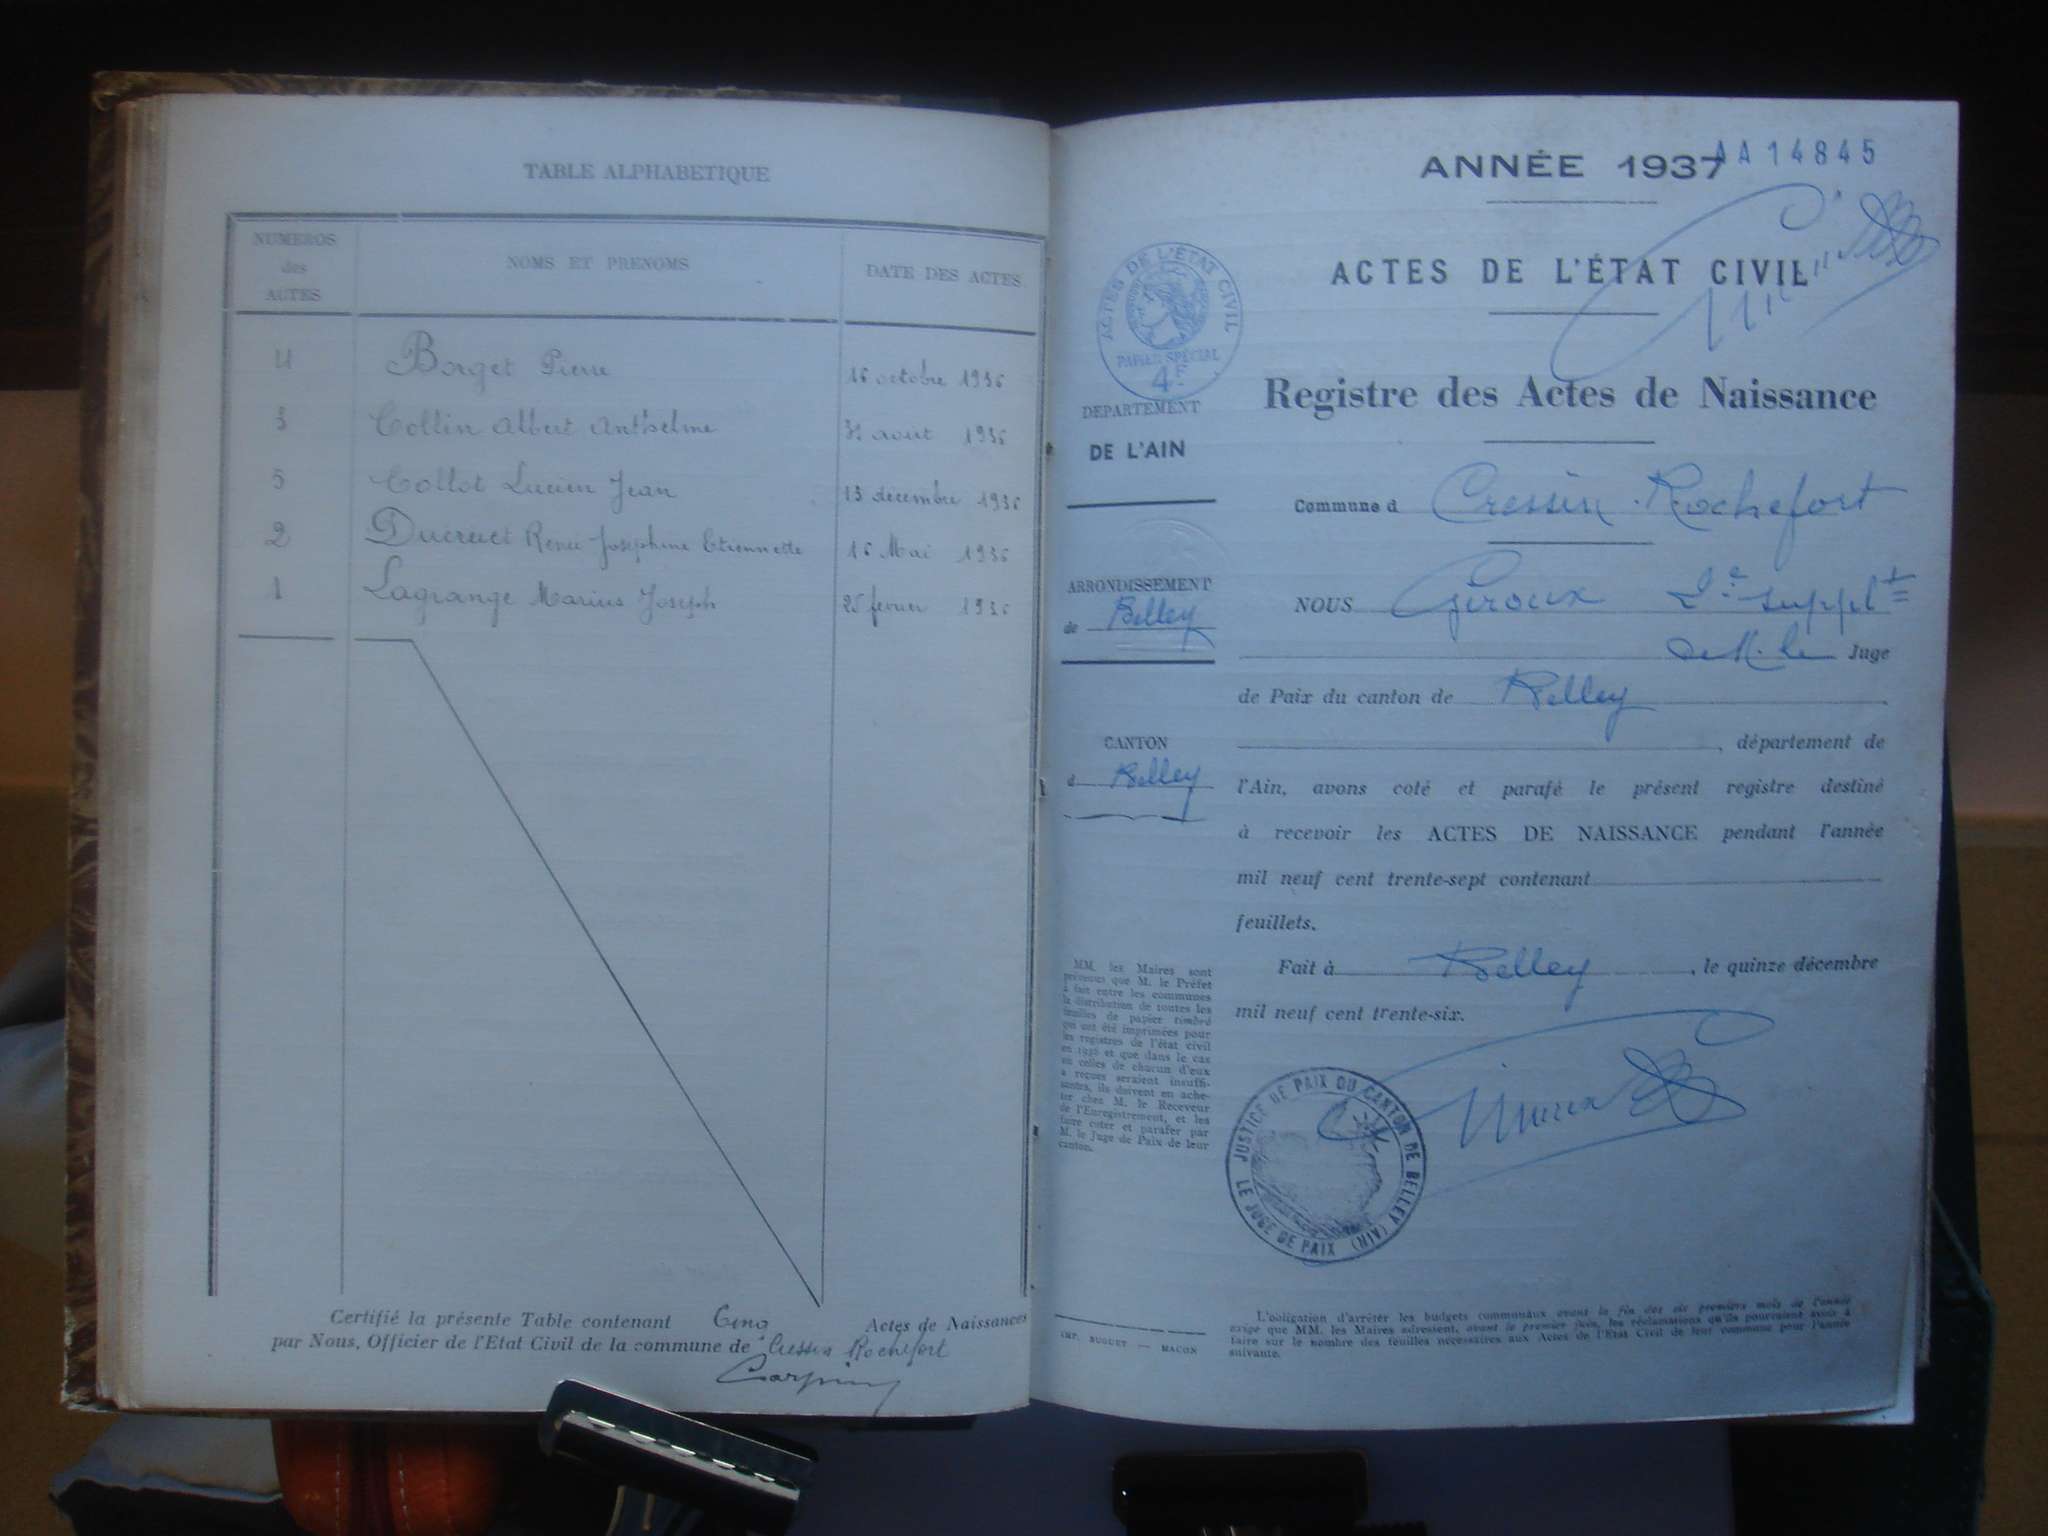 TABLE ALPHABETIQUE
NUMEROS
des
ACTES
NOMS ET PRENOMS
DATE DES ACTES
4 Borget Pierre 16 octobre 1936
3 Collin Albert Anthelme août 1936
5 Collot Lucien Jean 13 décembre 1936
2 Ducruet Renée Joséphine Etiennette 16 Mai 1936
1 Lagrange Marius Joseph 25 fevrier 1936
Certifié la présente Table contenant Cinq Actes de Naissances
par Nous, Officier de l'Etat Civil de la commune de Cressin Rochefort
ANNÉE 1937
AA14845
ACTES DE L'ÉTAT CIVIL
PAPIER SPÉCIAL
4F
ACTES DE L'ÉTAT CIVIL
Registre des Actes de Naissance
DÉPARTEMENT
DE L'AIN
Commune d Cressin-Rochefort
ARRONDISSEMENT
de Belley
NOUS Giroux 2e supplt
de M. le Juge
de Paix du canton de Belley
CANTON
d Belley
, département de
l'Ain, avons coté et parafé le présent registre destiné
à recevoir les ACTES DE NAISSANCE pendant l'année
mil neuf cent trente-sept contenant
feuillets.
Fait à Belley , le quinze décembre
mil neuf cent trente-six.
MM. les Maires sont
prévenus que M. le Préfet
a fait entre les communes
la distribution de toutes les
feuilles de papier timbré
qui ont été imprimées pour
les registres de l'état civil
en 1936 et que dans le cas
où celles de chacun d'eux
a reçues seraient insuffi-
santes, ils doivent en ache-
ter chez M. le Receveur
de l'Enregistrement, et les
faire coter et parafer par
M. le Juge de Paix de leur
canton.
JUSTICE DE PAIX DU CANTON DE BELLEY (AIN)
LE JUGE DE PAIX
IMP. BUGUET — MACON
L'obligation d'arrêter les budgets communaux avant la fin des six premiers mois de l'année
exige que MM. les Maires adressent, avant le premier juin, les réclamations qu'ils pourraient avoir à
faire sur le nombre des feuilles nécessaires aux Actes de l'Etat Civil de leur commune pour l'année
suivante.